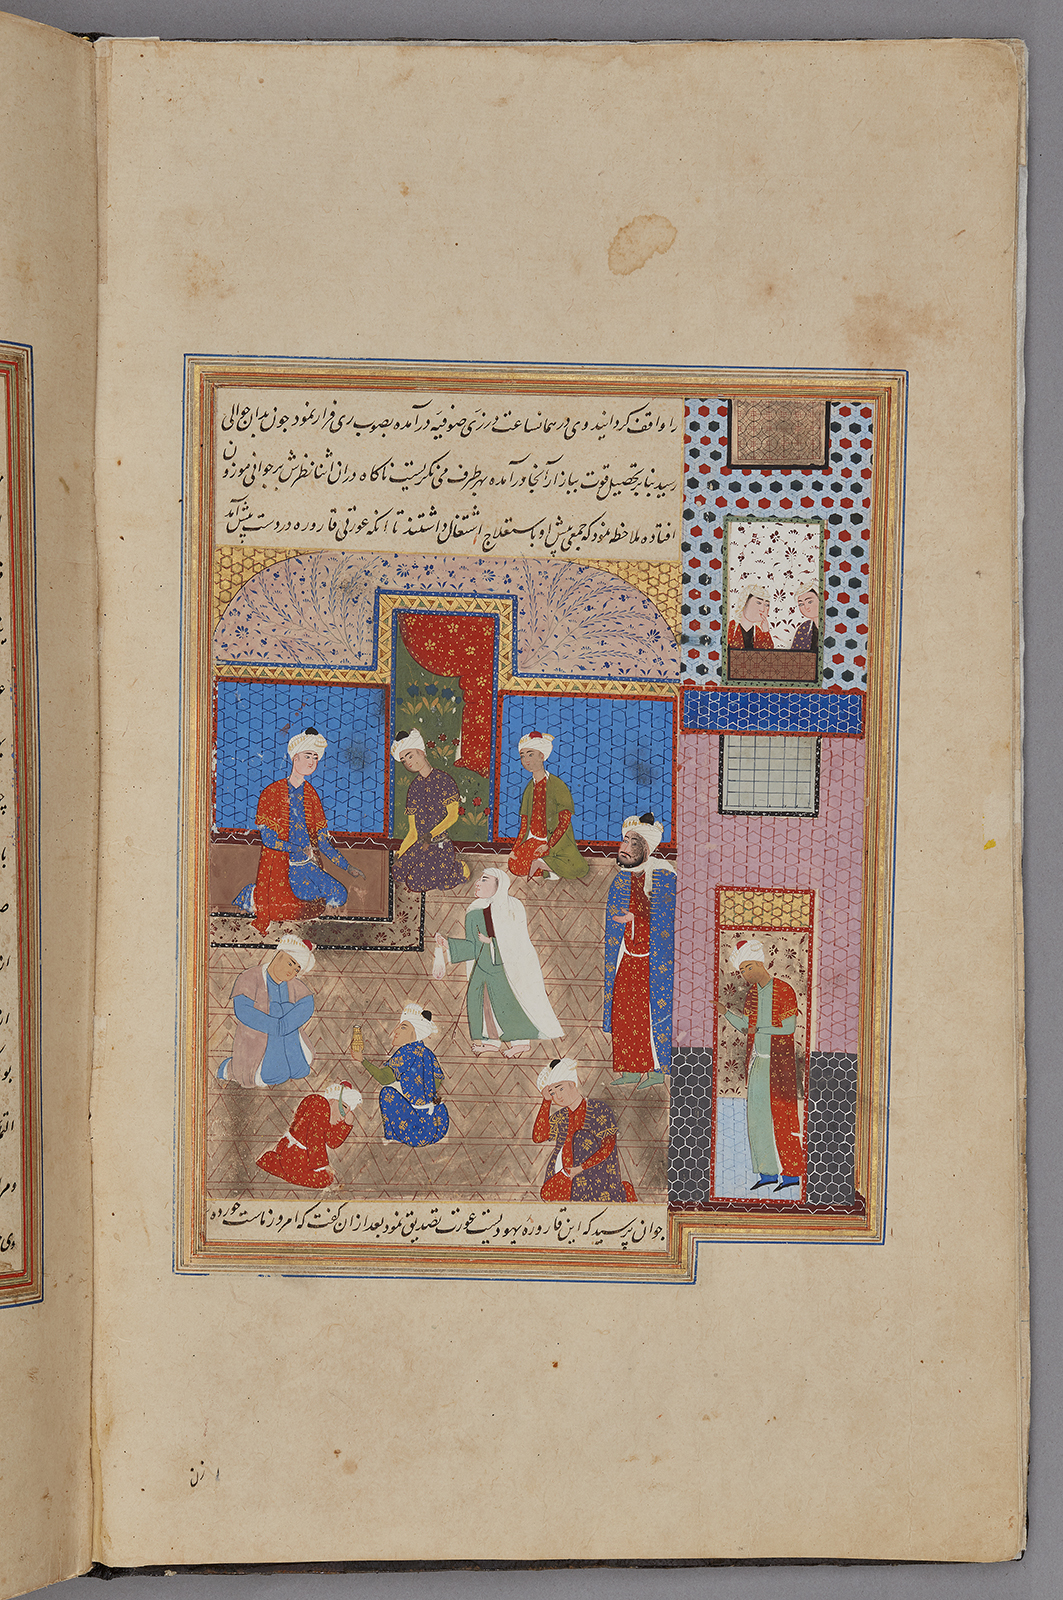 را واقف گردانیدند وی در همانساعت در زی صوفیه درآمده بصوب ری فرار نمود جون بدان حوالی
رسید بنابر تحصیل قوت ببازار آنجا درآمده بهر طرف می نکریست ناکاه در ان اثنا نظرش بر جوانی موزون
افتاده ملاحظه نمود که جمعی پیش او باستعلاج اشتغال داشتند تا انکه عورتی قاروره در دست پیش آمد
جوان پرسید که این قاروره یهودیست عورت تصدیق نمود بعد ازان کفت که امروز ماست خورده
زن